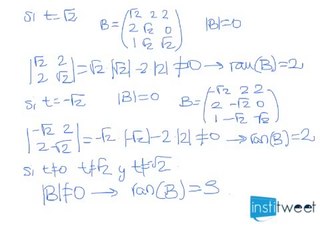 Si t=√2 B=(√2 2 2 |B|=0
2 √2 0
1 √2 √2)
|√2 2
2 √2| =√2 |√2|-2 |2| ≠0 → ran(B)=2
Si t=-√2 |B|=0 B=(-√2 2 2
2 -√2 0
1 -√2 -√2)
|-√2 2
2 -√2| =-√2 |-√2|-2 |2| ≠0 → ran(B)=2
Si t≠0 t≠√2 y t≠-√2
|B|≠0 → ran(B)=3
institweet